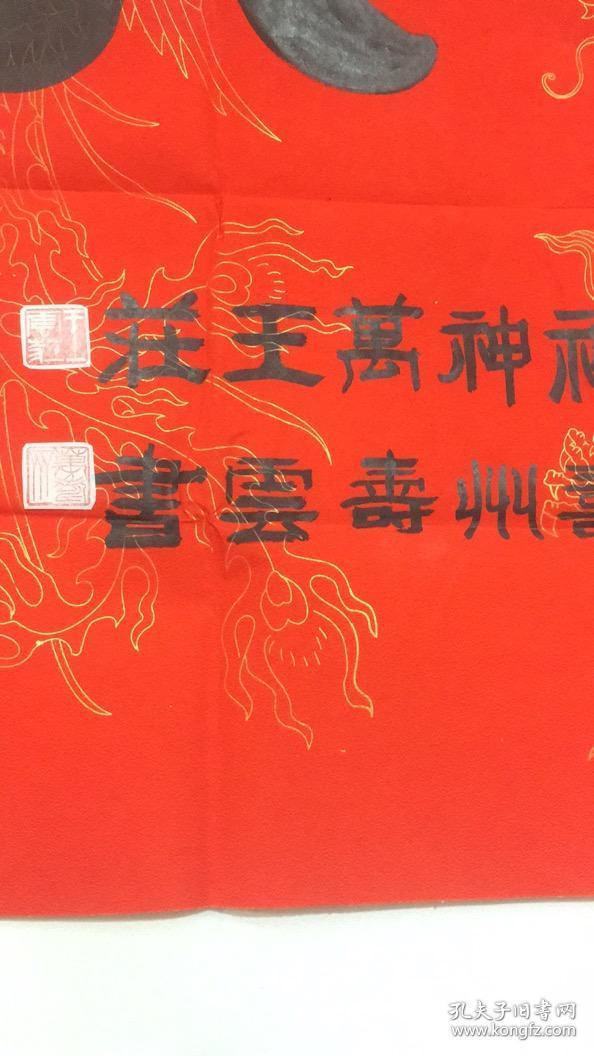 神州
萬壽
王雲
莊書
孔夫子旧书网
www.kongfz.com